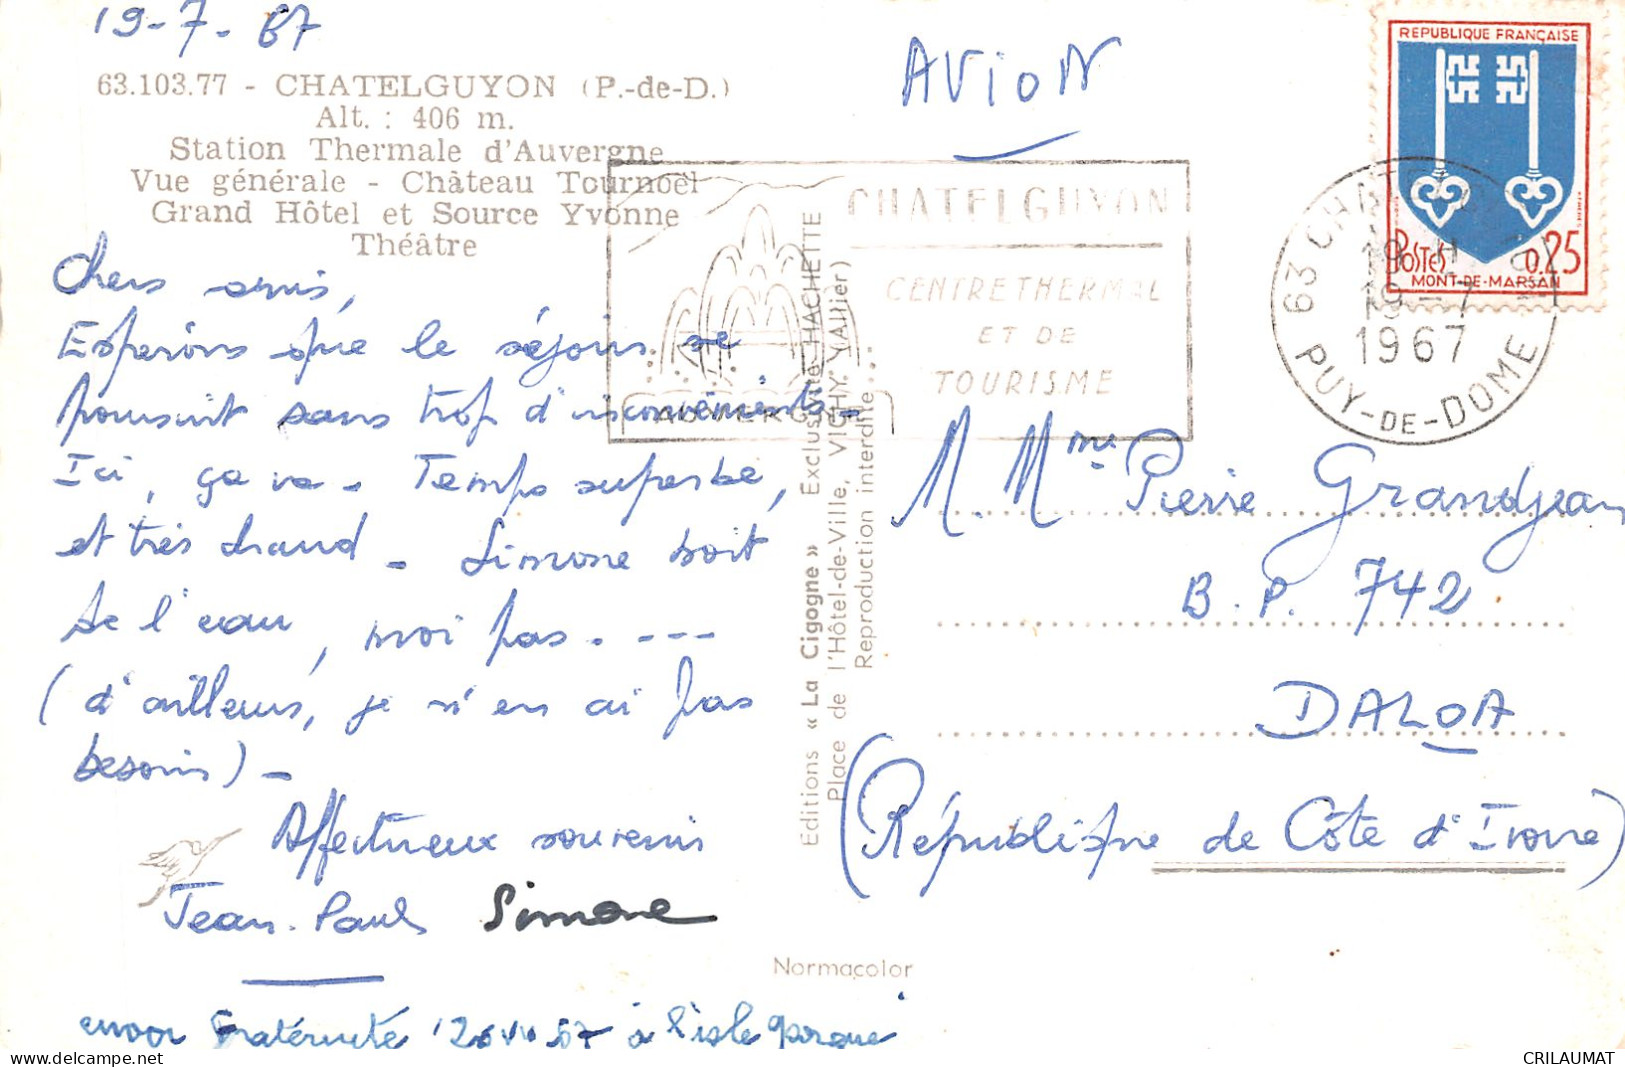 19-7-67
63.103.77 - CHATELGUYON (P.-de-D.)
Alt. : 406 m.
Station Thermale d'Auvergne
Vue générale - Château Tournoël
Grand Hôtel et Source Yvonne
Théâtre
Chers amis,
Espérons que le séjour se
poursuit sans trop d'inconvénients.
Ici, ça va - Temps superbe,
et très chaud - Simone boit
de l'eau, moi pas. ---
(d'ailleurs, je n'en ai pas
besoin) -
Affectueux souvenir
Jean-Paul Simone
Fraternité à l'isle
AVION
REPUBLIQUE FRANÇAISE
POSTES 0,25
MONT-DE-MARSAN
63 CHATELGUYON
19 H
19-7
1967
PUY-DE-DOME
CHATELGUYON
CENTRE THERMAL
ET DE
TOURISME
AUVERGNE
Editions « La Cigogne » Exclusivité HACHETTE
Place de l'Hôtel-de-Ville, VICHY
Reproduction interdite
M. Mme Pierre Grandjean
B.P. 742
DALOA
(République de Côte d'Ivoire)
Normacolor
CRILAUMAT